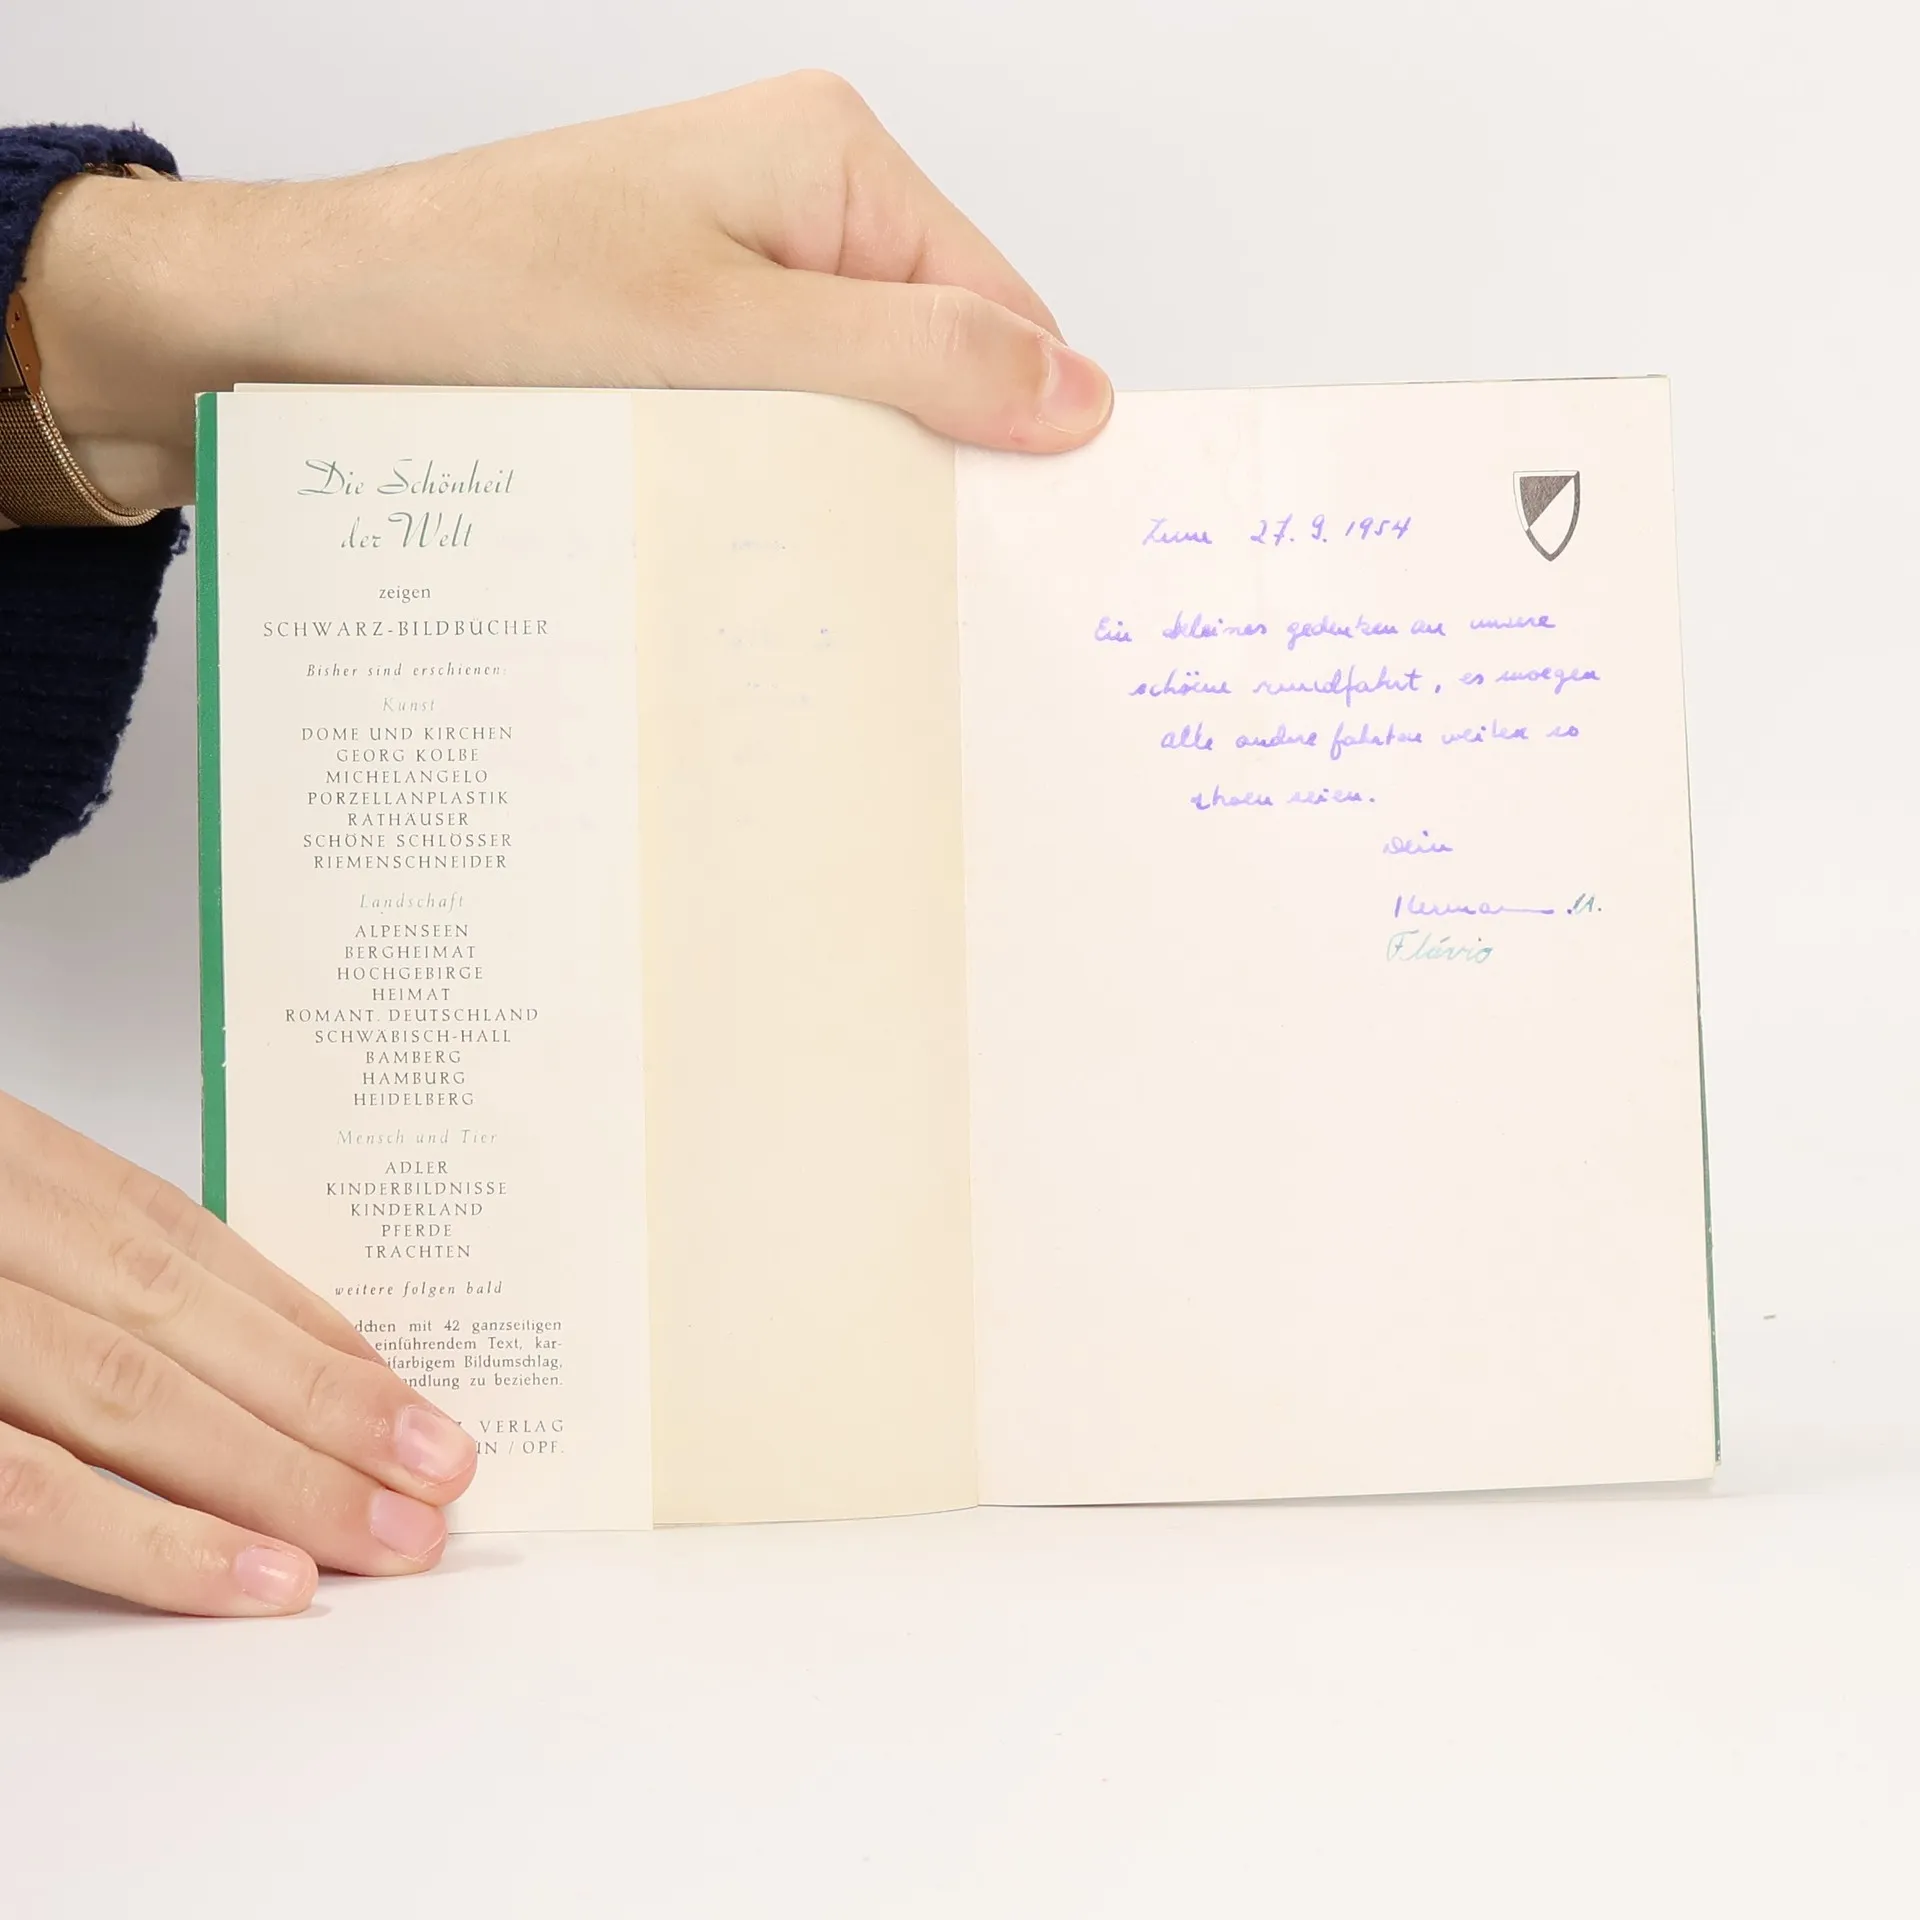 Die Schönheit
der Welt
zeigen
SCHWARZ-BILDBÜCHER
Bisher sind erschienen:
Kunst
DOME UND KIRCHEN
GEORG KOLBE
MICHELANGELO
PORZELLANPLASTIK
RATHÄUSER
SCHÖNE SCHLÖSSER
RIEMENSCHNEIDER
Landschaft
ALPENSEEN
BERGHEIMAT
HOCHGEBIRGE
HEIMAT
ROMANT. DEUTSCHLAND
SCHWÄBISCH-HALL
BAMBERG
HAMBURG
HEIDELBERG
Mensch und Tier
ADLER
KINDERBILDNISSE
KINDERLAND
PFERDE
TRACHTEN
weitere folgen bald
dchen mit 42 ganzseitigen
einführendem Text, kar-
ifarbigem Bildumschlag,
andlung zu beziehen.
VERLAG
ÜN / OPF.
27. 9. 1954
Ein kleines gedenken an unsere
schöne rundfahrt, es moegen
alle andere fahrten weiter so
shoen seien.
Dein
Hermann M.
Flávio